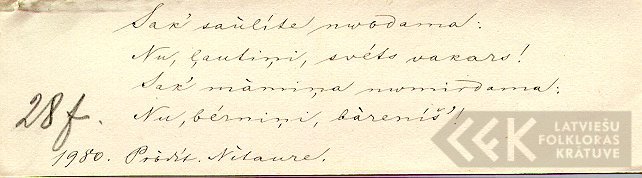 Sak' saùlíte nwòdama:
Nu, ļautiņi, svéts vakars!
Sak' mâmiņa nwmirdama:
Nu, bérniņi, bàreníš'!
28f.
1980. Pròdít. Nítaure.
LATVIEŠU
FOLKLORAS
KRĀTUVE
LFK